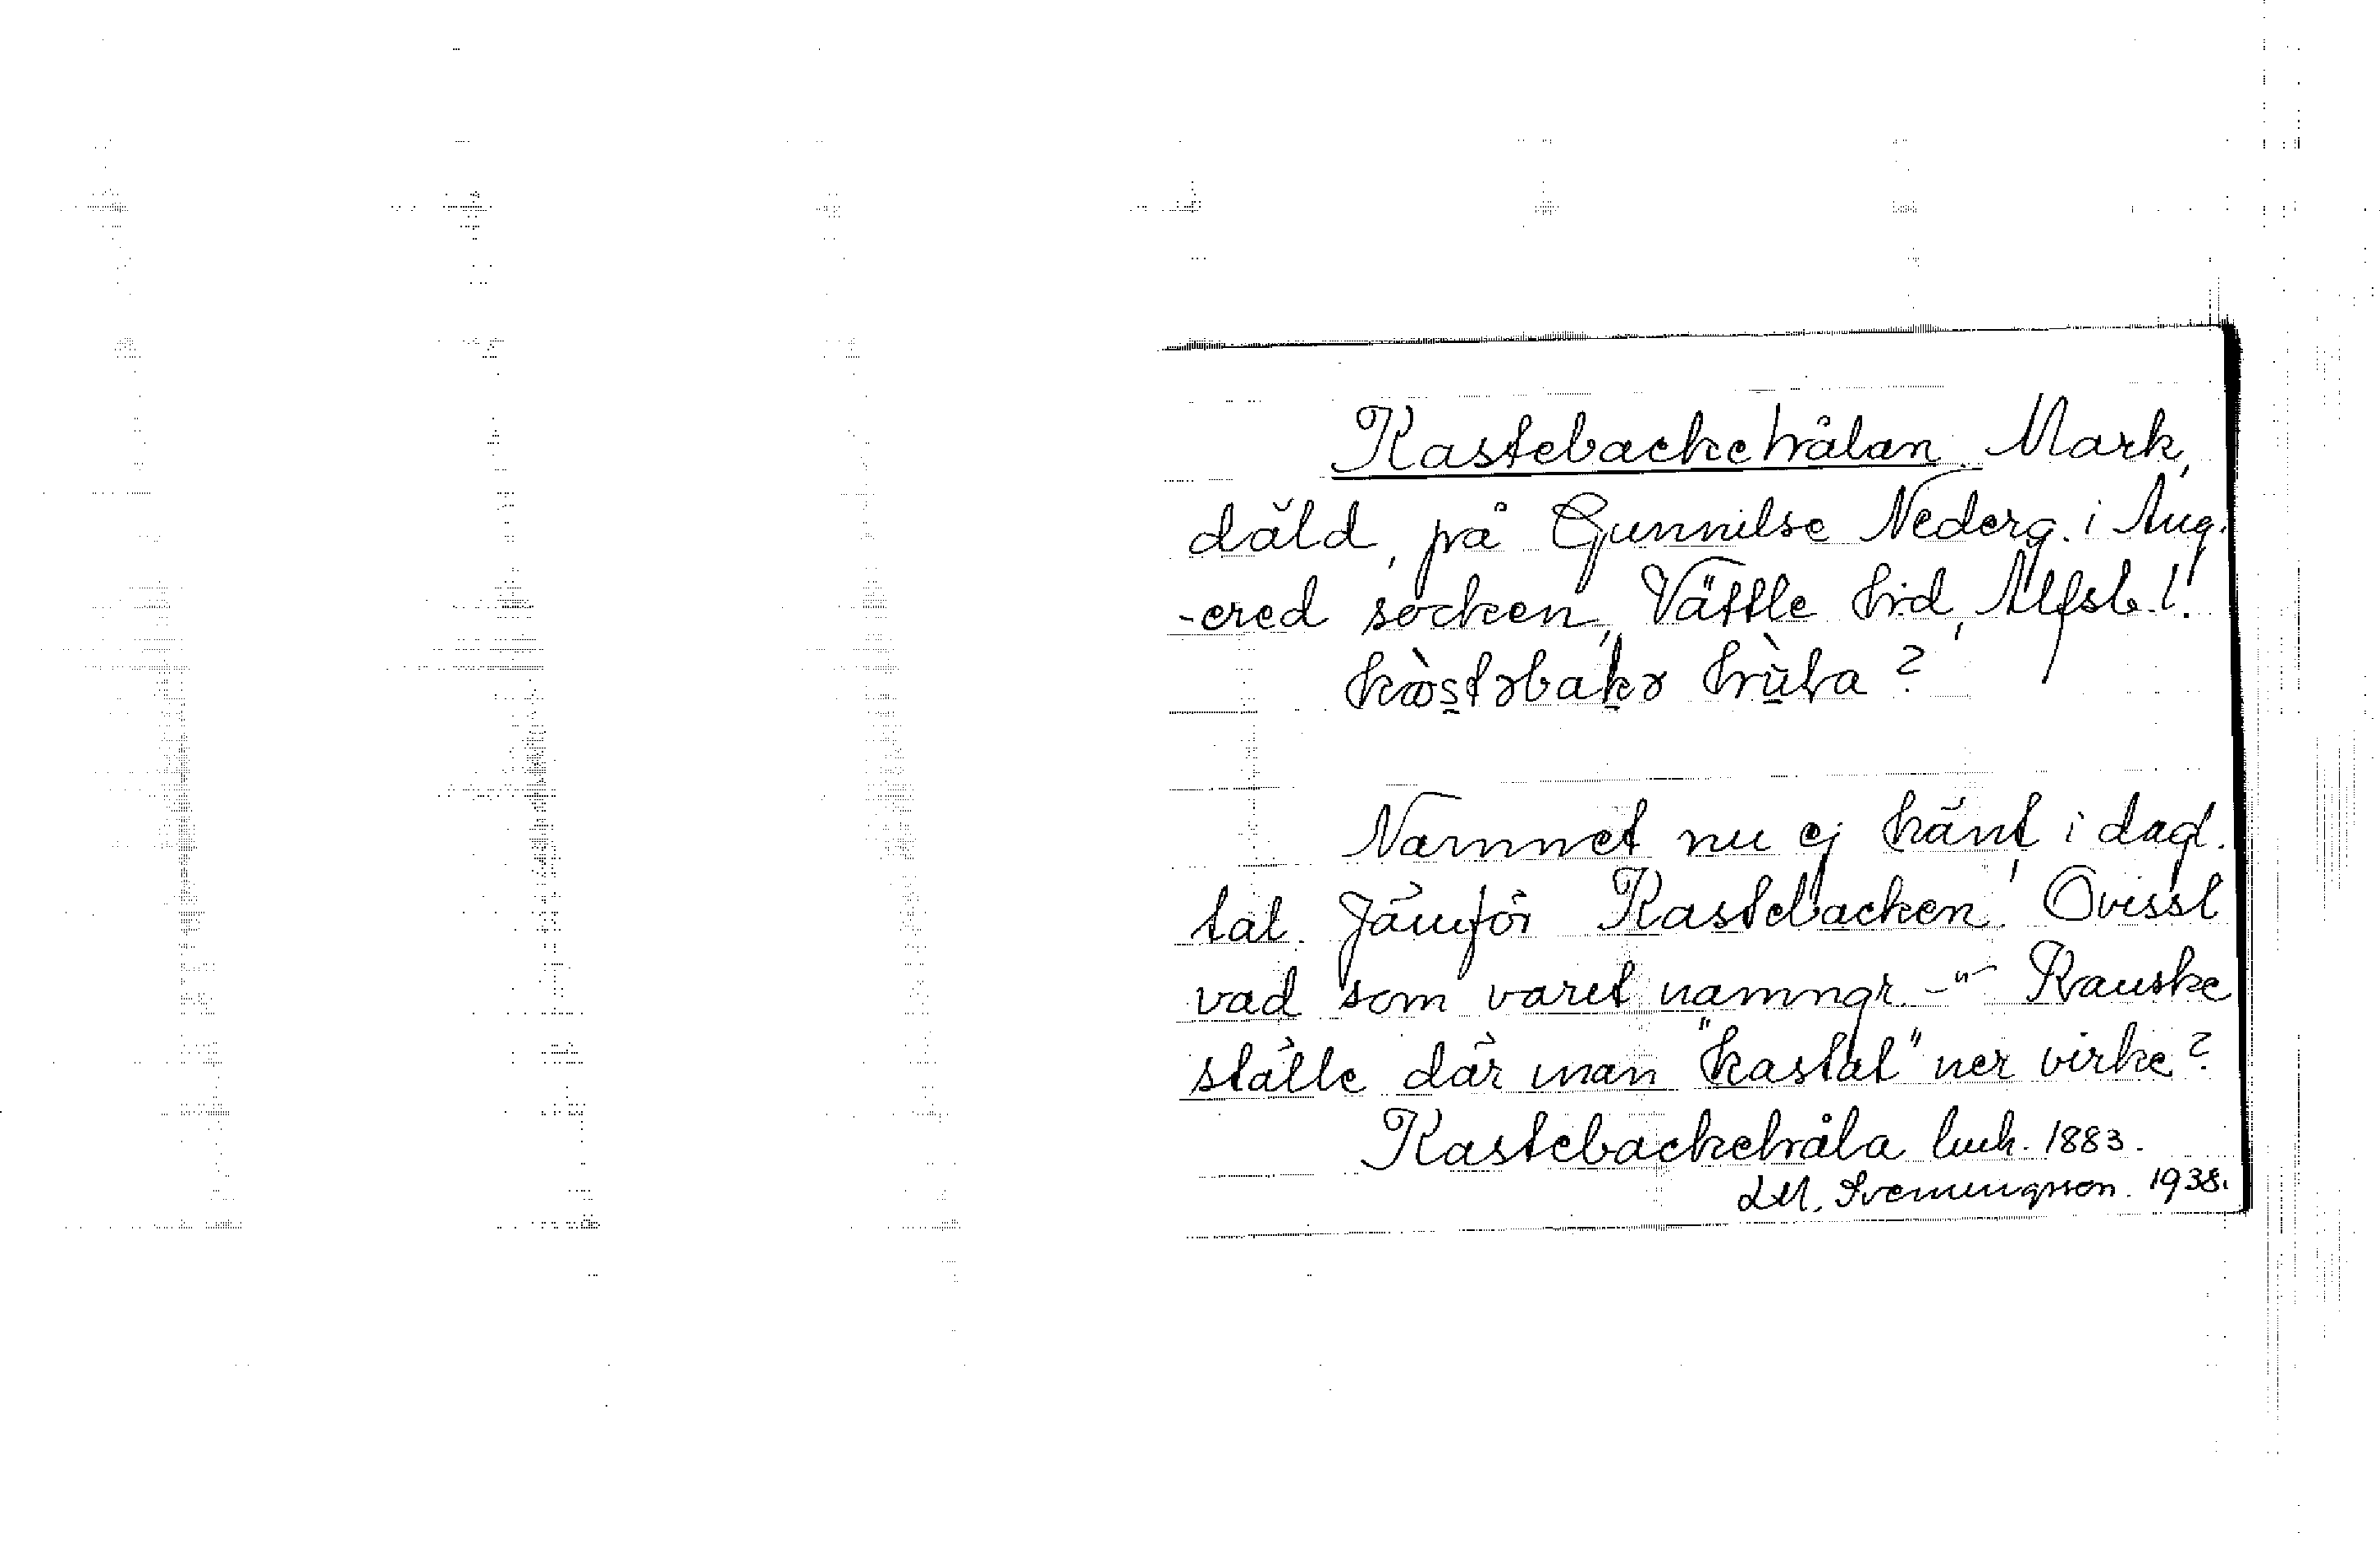 Kastebacketrålan. Mark,
däld, på Gunnilse Nederg. i Ang-
-ered socken, Vättle hrd, Älfsb. l.
Namnet nu ej känt i dagl.
tal. Jämför Kastebacken! Ovisst
vad som varit namngr. -"- Kanske
ställe där man "kastat" ner virke?
Kastebacketråla lmk. 1883.
LM. Svenungsson. 1938.